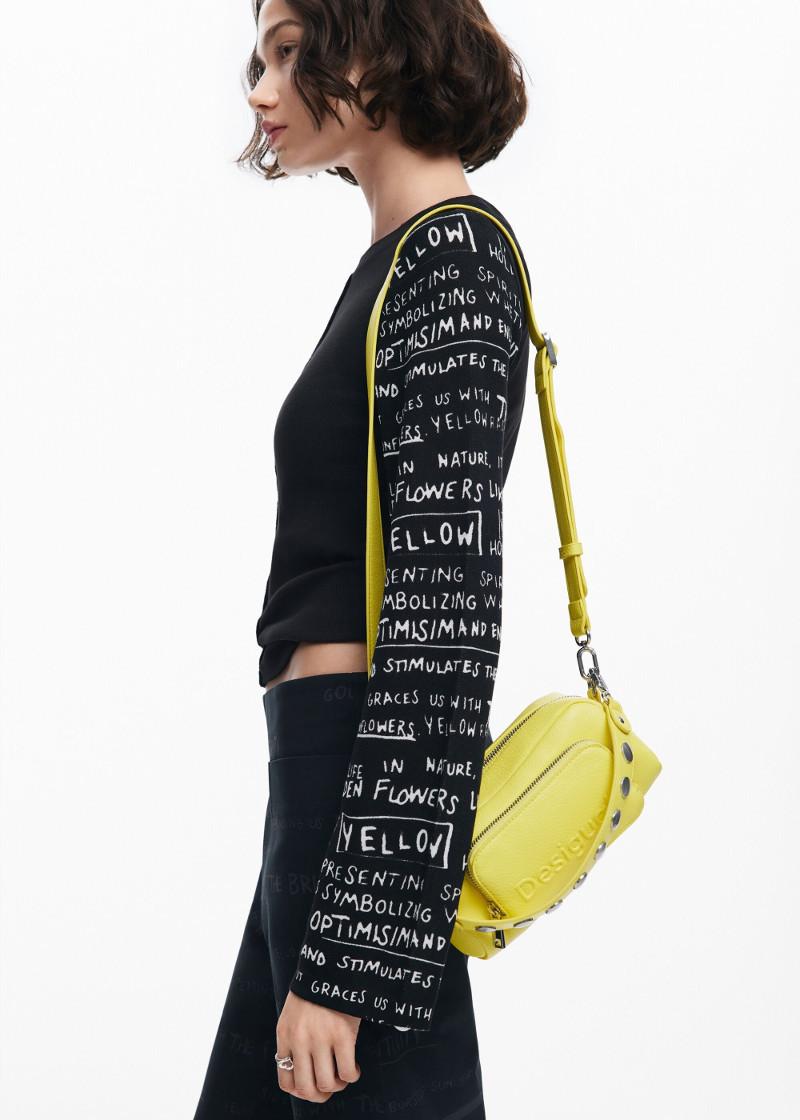 ELLOW
HOL
ESENTING SPIRIT
SYMBOLIZING WHET
OPTIMISIM AND EN
AND STIMULATES THE
GRACES US WITH T
INFLERS. YELLOW
IN NATURE, IT
FLOWERS LI
ELLOW
HO
SENTING SPIR
MBOLIZING W
TIMISIM AND EN
D STIMULATES THE
GRACES US WITH T
FLOWERS. YELLOW F
LIFE IN NATURE,
DEN FLOWERS L
YELLOW
H
PRESENTING SP
SYMBOLIZING W
OPTIMISIM AND
AND STIMULATES
T GRACES US WITH
GOL
THE BR
Desigua